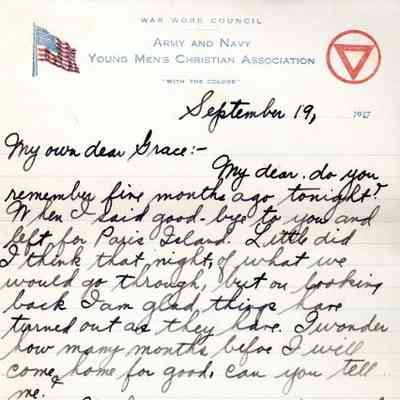 WAR WORK COUNCIL
ARMY AND NAVY
YOUNG MEN'S CHRISTIAN ASSOCIATION
"WITH THE COLORS"
September 19, 1917
My own dear Grace:-
My dear. do you
remember five months ago tonight?
When I said good-bye to you and
left for Paris Island. Little did
I think that night, of what we
would go through, but on looking
back I am glad things have
turned out as they have. I wonder
how many months before I will
come home for good, can you tell
me?